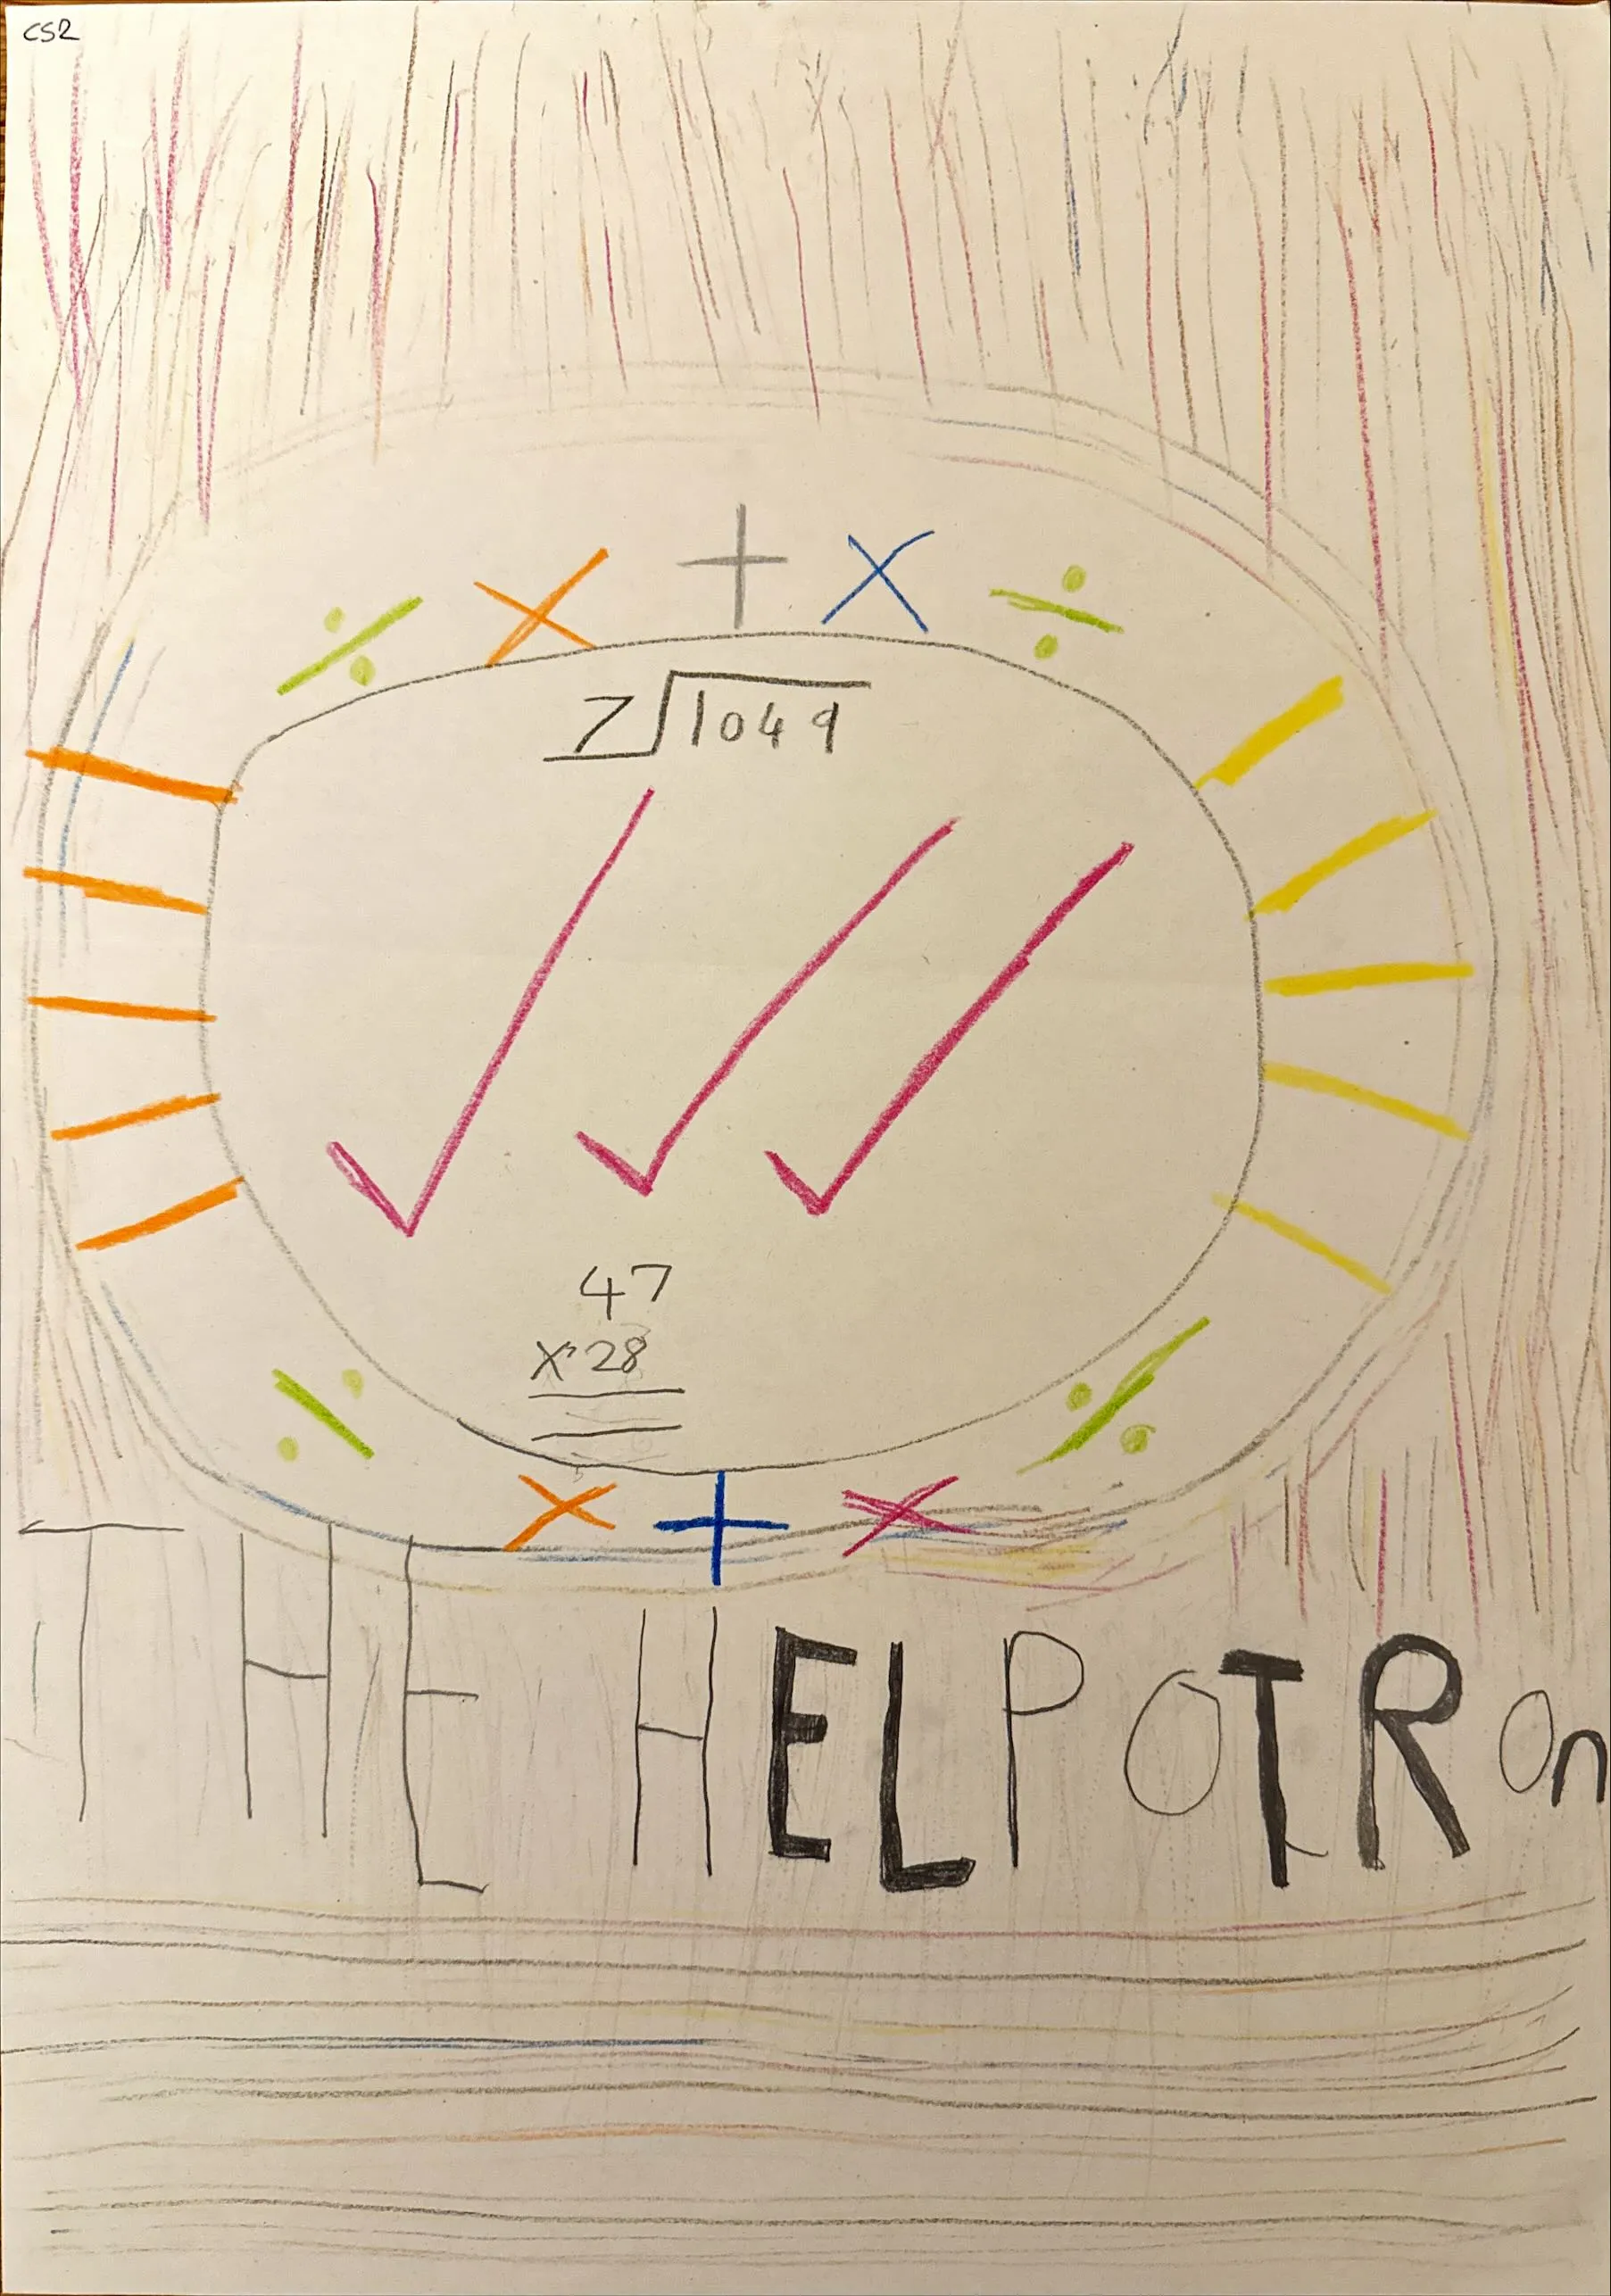 CS2
÷ × + × ÷
7 1049
47
×28
÷ ÷
× + ×
THE HELPOTROn